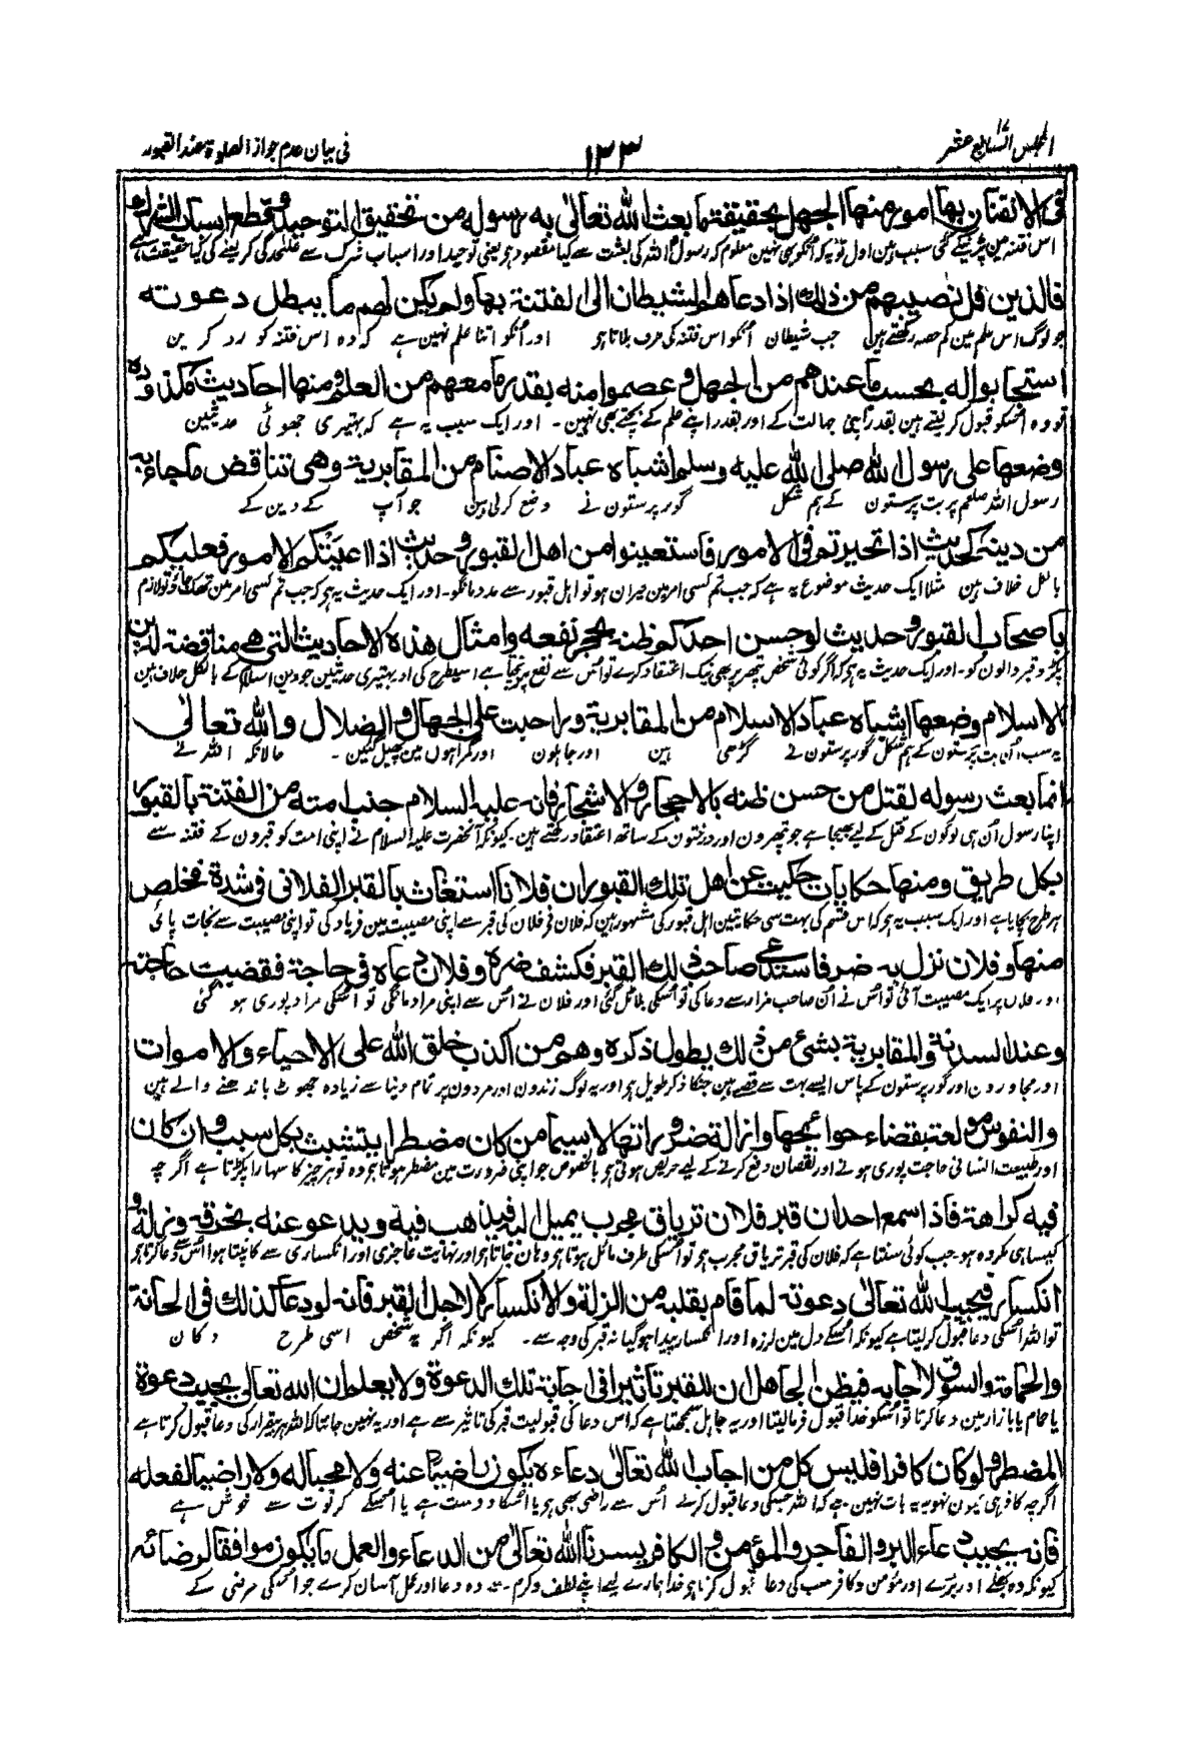 المجلس السابع عشر
١٣٣
في بيان عدم جواز الصلوة عند القبور
في الافتتان بها امور منها الجهل بحقيقة ما بعث الله تعالى به رسوله من تحقيق التوحيد وقطع اسباب الشرك
اس فتنہ مین پڑنیکے کئی سبب ہین اول تو یہ کہ انکو یہی نہین معلوم کہ رسول اللہ کی بعثت سے کیا مقصود ہو یعنی توحید اور اسباب شرک سے علٰحدگی کرینے کی کیا حقیقت ہے
فالذين قل نصيبهم من ذلك اذا دعاهم الشيطان الى الفتنة بها ولم يكن لهم ما يبطل دعوته
جو لوگ اس علم مین کم حصہ رکھتے ہین جب شیطان انکو اس فتنہ کی طرف بلاتا ہو اور انکو اتنا علم نہین ہے کہ وہ اس فتنہ کو رد کرین
استجابوا له بحسب ما عندهم من الجهل وعصموا منه بقدر ما معهم من العلم ومنها احاديث مكذوبة
تو وہ اسکو قبول کر لیتے ہین بقدر اپنی جہالت کے اور بقدر اپنے علم کے بچتے بھی ہین۔ اور ایک سبب یہ ہے کہ بہتیری جھوٹی حدیثین
وضعها على رسول الله صلى الله عليه وسلم اشباه عباد الاصنام من المقابرية وهي تناقض ما جاء به
رسول اللہ صلعم پر بت پرستون کے ہم شکل گور پرستون نے وضع کرلی ہین جو آپ کے دین کے
من دينه كحديث اذا تحيرتم في الامور فاستعينوا من اهل القبور وحديث اذا اعيتكم الامور فعليكم
بالکل خلاف ہین مثلا ایک حدیث موضوع یہ ہے کہ جب تم کسی امر مین حیران ہو تو اہل قبور سے مدد مانگو۔ اور ایک حدیث یہ ہو کہ جب تم کسی امر مین تھک جاؤ تو لازم
باصحاب القبور وحديث لو حسن احدكم ظنه بحجر نفعه وامثال هذه الاحاديث التي هي مناقضة لدين
پکڑو قبر والون کو۔ اور ایک حدیث یہ ہو کہ اگر کوئی شخص پتھر پر بھی نیک اعتقاد کرے تو اس سے نفع پہونچتا ہے اسیطرح کی اور بہتیری حدیثین جو دین اسلام کے بالکل خلاف ہین
الاسلام وضعها اشباه عباد الاسلام من المقابرية وراجت على الجهال والضلال والله تعالى
یہ سب ان بت پرستون کے ہم شکل گور پرستون نے گڑھی ہین اور جاہلون اور گمراہون مین پھیل گئین۔ حالانکہ اللہ نے
انما بعث رسوله لقتل من حسن ظنه بالاحجار والاشجار فانه عليه السلام جنب امته من الفتنة بالقبور
اپنا رسول اُن ہی لوگون کے قتل کے لیے بھیجا ہے جو پتھرون اور درختون کے ساتھ اعتقاد رکھتے ہین۔ کیونکہ آنحضرت علیہ السلام نے اپنی امت کو قبرون کے فتنہ سے
بكل طريق ومنها حكايات حكيت عن اهل تلك القبور ان فلانا استغاث بالقبر الفلاني في شدة فخلص
ہر طرح بچایا ہے اور ایک سبب یہ ہو کہ اس قسم کی بہت سی حکایتین اہل قبور کی مشہور ہین کہ فلان نے فلان کی قبر سے اپنی مصیبت مین فریاد کی تو اپنی مصیبت سے نجات پائی
منها وفلان نزل به ضر فاستدعى صاحب ذلك القبر فكشف ضره وفلان دعاه في حاجة فقضيت حاجته
اور فلان پر ایک مصیبت آئی تو اس نے اُن صاحب مزار سے دعا کی تو اُسکی بلا ٹل گئی اور فلان نے اُس سے اپنی مراد مانگی تو اُسکی مراد پوری ہو گئی
وعند السدنة والمقابرية بشئ من ذلك يطول ذكره وهم من اكذب خلق الله على الاحياء والاموات
اور مجاورون اور گور پرستون کے پاس ایسے بہت سے قصے ہین جنکا ذکر طویل ہو اور یہ لوگ زندون اور مردون پر تمام دنیا سے زیادہ جھوٹ باندھنے والے ہین
والنفوس مولعة بقضاء حوائجها وازالة ضروراتها لا سيما من كان مضطرا يتشبث بكل سبب وان كان
اور طبیعت انسانی حاجت پوری ہونے اور نقصان دفع کرنے کے لیے حریص ہوتی ہو بالخصوص جو اپنی ضرورت مین مضطر ہو گیا ہو وہ تو ہر چیز کا سہارا پکڑتا ہے اگر چہ
فيه كراهة فاذا سمع احد ان قبر فلان ترياق مجرب يميل اليه فيذهب فيه ويدعو عنه بخرقة وزلة و
کیسا ہی مکروہ ہو۔ جب کوئی سنتا ہے کہ فلان کی قبر تریاق مجرب ہو تو اُسکی طرف مائل ہوتا ہو وہان جاتا ہو اور نہایت عاجزی اور انکساری سے کانپتا ہوا اُس سے دعا کرتا ہو
انكسار فيجيب الله تعالى دعوته لما قام بقلبه من الزلة والانكسار لا لاجل القبر فانه لو دعا كذلك في الحانة
تو اللہ اُسکی دعا قبول کر لیتا ہے کیونکہ اُسکے دل مین لرزہ اور انکسار پیدا ہو گیا نہ قبر کی وجہ سے۔ کیونکہ اگر یہ شخص اسی طرح دکان
والحمام والسوق لاجابه فيظن الجاهل ان للقبر تأثيرا في اجابة تلك الدعوة ولا يعلم ان الله تعالى يجيب دعوة
یا حمام یا بازار مین دعا کرتا تو اُسکو خدا قبول فرما لیتا اور یہ جاہل سمجھتا ہے کہ اس دعا کی قبولیت قبر کی تاثیر سے ہے اور یہ نہین جانتا کہ اللہ ہر بیقرار کی دعا قبول کرتا ہے
المضطر ولو كان كافرا فليس كل من اجاب الله تعالى دعاءه يكون راضيا عنه ولا محبا له ولا راضيا لفعله
اگرچہ کافر ہی کیون نہو یہ بات نہین ہے کہ اللہ جسکی دعا قبول کرلے اُس سے راضی بھی ہو یا اُسکا دوست ہے یا اُسکے کرتوت سے خوش ہے
فانه يجيب دعاء البر والفاجر والمؤمن والكافر يسرنا الله تعالى من الدعاء والعمل ما يكون موافقا لرضائه
کیونکہ وہ بھلے اور بُرے اور مؤمن و کافر سب کی دعا قبول کرتا ہو خدا ہمارے لیے اپنے لطف و کرم سے وہ دعا اور عمل آسان کرے جو اُسکی مرضی کے